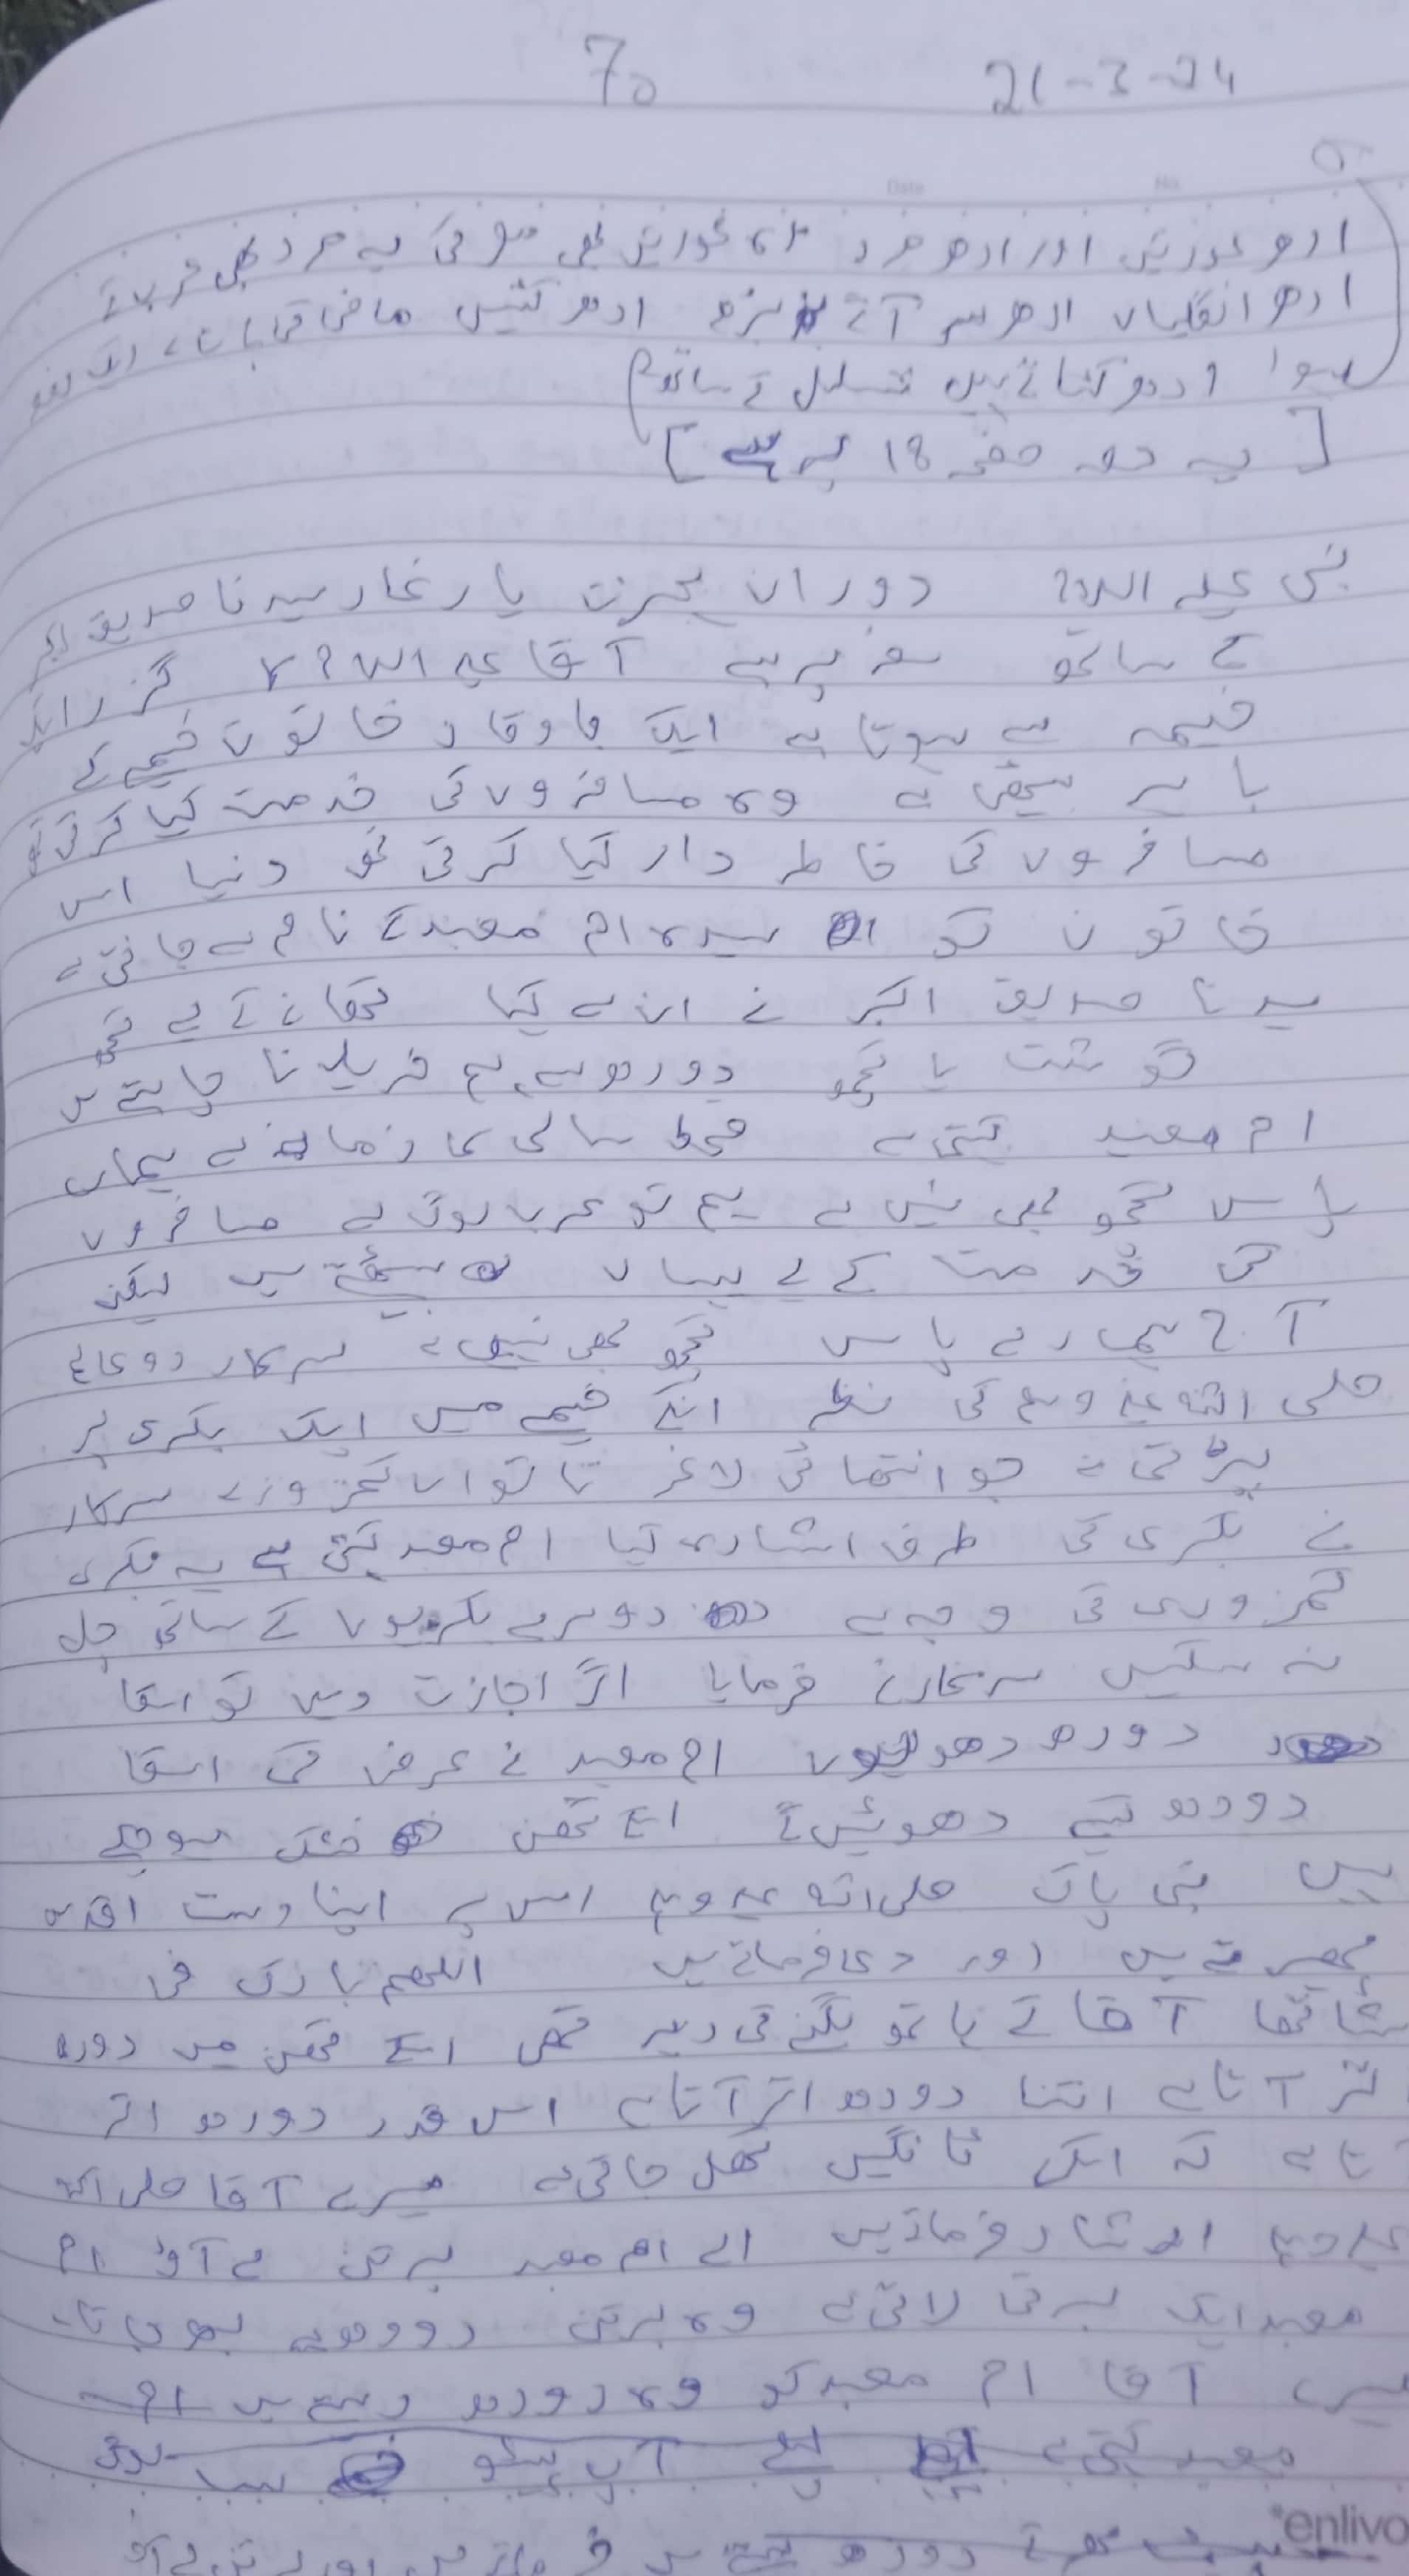 70 21-3-24
ادھر عورتیں اور ادھر مرد عورتیں بھی یہ مرد بھی
ادھر انگلیاں ادھر سر آتے ادھر کٹیں ماضی کی بات ہے ایک دفعہ
ہوا ادھر کٹاتے ہیں تسلسل کے ساتھ
[یہ صفحہ 18 پر ہے]
نبی علیہ السلام دوران ہجرت یار غار سیدنا صدیق اکبر
کے ساتھ سفر پر ہے آقا علیہ السلام کا گزر ایک
خیمہ سے ہوتا ہے ایک باوقار خاتون خیمے کے
باہر بیٹھی ہے وہ مسافروں کی خدمت کیا کرتی تھی
مسافروں کی خاطر دار کیا کرتی تھی دنیا اس
خاتون کو سیدہ ام معبد کے نام سے جانتی ہے
سیدنا صدیق اکبر نے ان سے کہا کھانے کے لیے کچھ
گوشت یا کچھ دودھ ہے ہم خریدنا چاہتے ہیں
ام معبد کہتی ہے قحط سالی کا زمانہ ہے ہمارے
پاس کچھ بھی نہیں ہے ہم تو عرب لوگ ہے مسافروں
کی خدمت کے لے یہاں بیٹھے ہیں لیکن
آج ہمارے پاس کچھ بھی نہیں ہے سرکار دو عالم
صلی اللہ علیہ وسلم کی نظر انکے خیمے میں ایک بکری پر
پڑتی ہے جو انتھائی لاغر ناتواں کمزور ہے سرکار
نے بکری کی طرف اشارہ کیا ام معبد کہتی ہے یہ بکری
کمزوری کی وجہ سے دوسرے بکریوں کے ساتھ چل
نہ سکیں سرکار نے فرمایا اگر اجازت دیں تو اسکا
دودھ دھو لوں ام معبد نے عرض کی اسکا
دودھ کیسے دھوئیں گے اسکے تھن خشک ہو چکے
ہیں نبی پاک صلی اللہ علیہ وسلم اس پہ اپنا دست اقدس
پھیرتے ہیں اور دعا فرماتے ہیں اللھم بارک فی
شاتھا آقا کے ہاتھ لگنے کی دیر تھی اسکے تھن میں دودھ
اتر آتا ہے اتنا دودھ اتر آتا ہے اس قدر دودھ اتر
آتا ہے کہ اسکی ٹانگیں کھل جاتی ہے میرے آقا صلی اللہ
علیہ وسلم ارشاد فرماتے ہیں اے ام معبد برتن لے آؤ ام
معبد ایک برتن لاتی ہے وہ برتن دودھ سے بھر جاتا ہے
میرے آقا ام معبد کو وہ دودھ دیتے ہیں ام
معبد کہتی ہے پہلے آپ پیئو سب لوگ
دودھ
enlivo